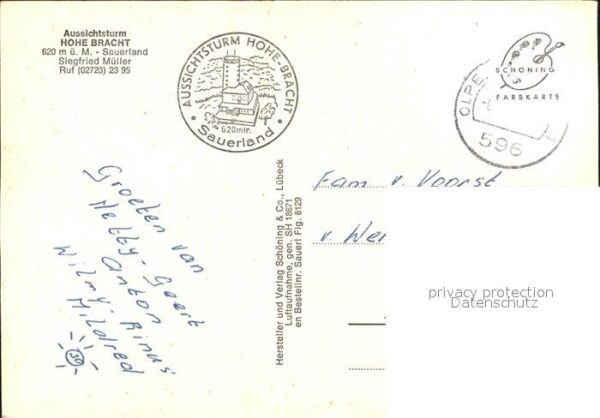 Aussichtsturm
HOHE BRACHT
620 m ü. M. - Sauerland
Siegfried Müller
Ruf (02723) 23 95
AUSSICHTSTURM HOHE-BRACHT
620 mtr.
Sauerland
SCHÖNING
FARBKARTE
OLPE
596
Groeten van
Hetty - Geert
Anton Rinus
Wilmy. Mildred
Hersteller und Verlag Schöning & Co., Lübeck
Luftaufnahme, gen. SH 18671
en Bestellnr. Sauerl Flg. 8129
Fam v. Voorst
v Wer
privacy protection
Datenschutz